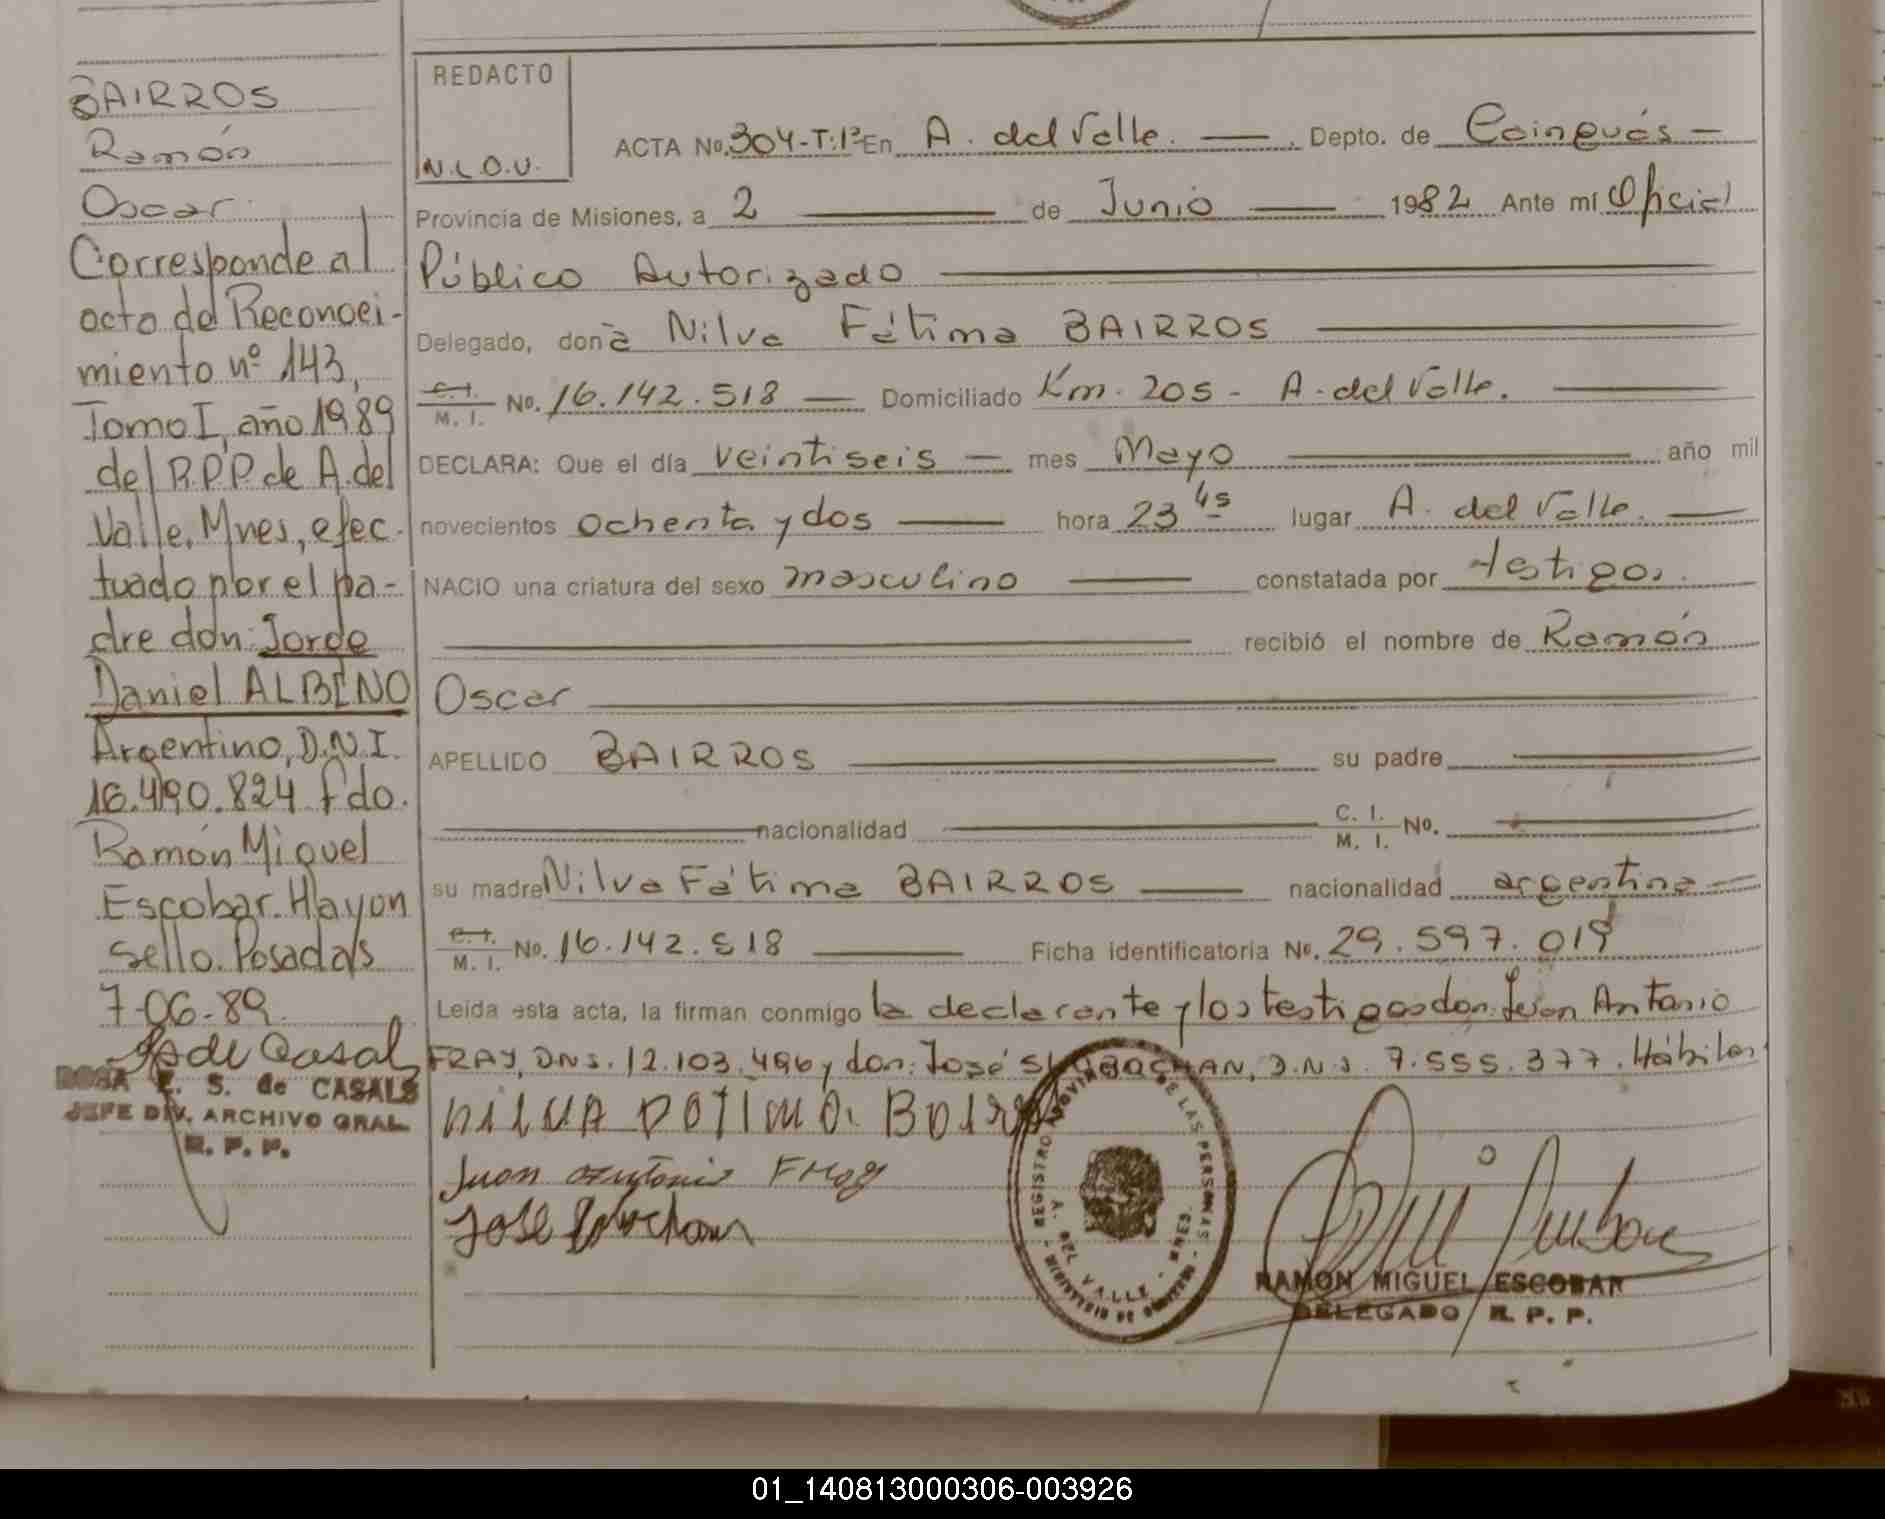 BAIRROS
Ramón
Oscar
Corresponde al
acta de Reconoci-
miento nº 143,
Tomo I, año 1989
del R.P.P de A. del
Valle. Mnes, efec-
tuado por el pa-
dre don: Jorge
Daniel ALBINO
Argentino, D.N.I.
16.490.824 fdo.
Ramón Miguel
Escobar. Hay un
sello. Posadas
7-06-89.
ROSA E. S. de CASALS
JEFE DIV. ARCHIVO GRAL.
R. P. P.
REDACTO
N.L.O.U.
ACTA No. 304-T:1º En A. del Valle. Depto. de Cainguás
Provincia de Misiones, a 2 de Junio 1982 Ante mí Oficial
Público Autorizado
Delegado, don a Nilva Fátima BAIRROS
C. I. M. I. No. 16.142.518 Domiciliado Km. 205 - A. del Valle.
DECLARA: Que el día veintiseis mes Mayo año mil
novecientos ochenta y dos hora 23 45 lugar A. del Valle.
NACIO una criatura del sexo masculino constatada por testigos.
recibió el nombre de Ramón
Oscar
APELLIDO BAIRROS su padre
nacionalidad C. I. M. I. No.
su madre Nilva Fátima BAIRROS nacionalidad argentina
C. I. M. I. No. 16.142.518 Ficha identificatoria No. 29.597.019
Leída esta acta, la firman conmigo la declarante y los testigos don: Juan Antonio
FRAY, DNI. 12.103.496 y don: José D.N.I. 7.555.377. Hábiles
Juan Antonio Fray
José
REGISTRO PROVINCIAL DE LAS PERSONAS
A. DEL VALLE - MNES.
MINISTERIO DE GOBIERNO
RAMON MIGUEL ESCOBAR
DELEGADO R. P. P.
01_140813000306-003926